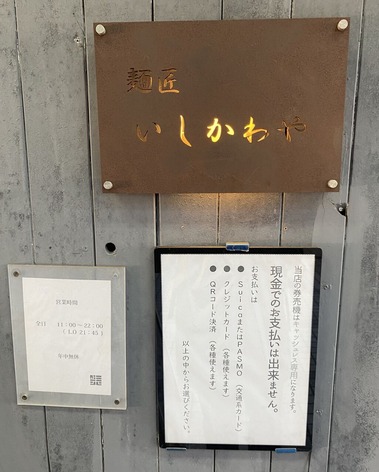 麺匠
いしかわや
当店の券売機はキャッシュレス専用になります。
現金でのお支払いは出来ません。
お支払いは
● SuicaまたはPASMO（交通系カード）
● クレジットカード（各種使えます）
● QRコード決済（各種使えます）
以上の中からお選びください。
営業時間
全日 11:00～22:00
(L.O 21:45)
年中無休